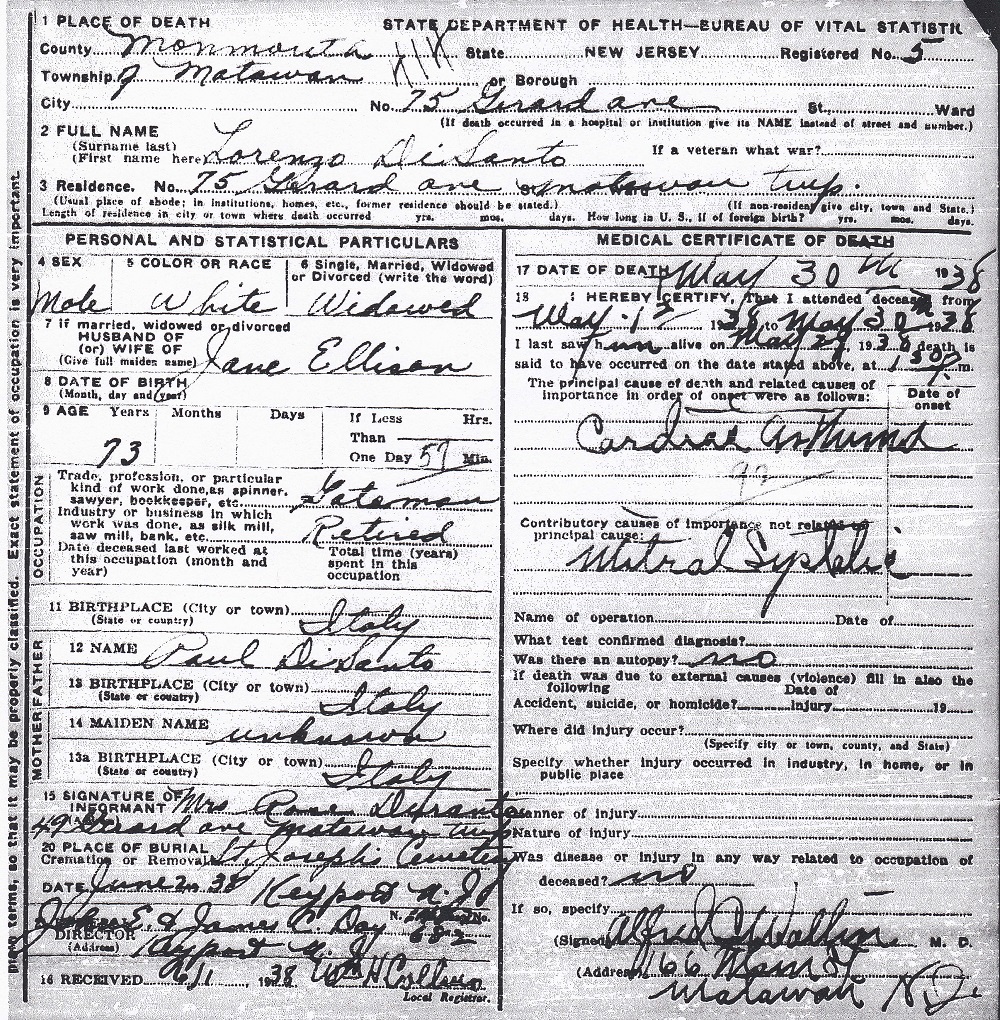 1 PLACE OF DEATH
STATE DEPARTMENT OF HEALTH—BUREAU OF VITAL STATISTI
County Monmouth State NEW JERSEY Registered No. 5
Township of Matawan or Borough
City No. 75 Gerard ave St. Ward
(If death occurred in a hospital or institution give its NAME instead of street and number.)
2 FULL NAME
(Surname last)
(First name here) Lorenzo DiSanto If a veteran what war?
3 Residence. No. 75 Gerard ave Matawan twp.
(Usual place of abode; in institutions, homes, etc., former residence should be stated.) (If non-resident give city, town and State.)
Length of residence in city or town where death occurred yrs. mos. days. How long in U. S., if of foreign birth? yrs. mos. days.
PERSONAL AND STATISTICAL PARTICULARS
4 SEX 5 COLOR OR RACE 6 Single, Married, Widowed
or Divorced (write the word)
Male White Widowed
7 If married, widowed or divorced
HUSBAND OF
(or) WIFE OF
(Give full maiden name) Jane Ellison
8 DATE OF BIRTH
(Month, day and year)
9 AGE Years Months Days If Less Hrs.
Than
73 One Day 59 Min.
OCCUPATION
Trade, profession, or particular
kind of work done, as spinner,
sawyer, bookkeeper, etc. Gateman
Industry or business in which
work was done, as silk mill,
saw mill, bank, etc. Retired
Date deceased last worked at
this occupation (month and
year)
Total time (years)
spent in this
occupation
11 BIRTHPLACE (City or town)
(State or country) Italy
FATHER
12 NAME Paul DiSanto
13 BIRTHPLACE (City or town)
(State or country) Italy
MOTHER
14 MAIDEN NAME unknown
13a BIRTHPLACE (City or town)
(State or country) Italy
15 SIGNATURE OF
INFORMANT Mrs Rose Duranto
49 Gerard ave Matawan twp
20 PLACE OF BURIAL
Cremation or Removal St. Joseph's Cemetery
DATE June 2 38 Keyport N. J.
John E. & James C. Day N. No.
DIRECTOR 682
(Address) Keyport N. J.
16 RECEIVED 6/1, 1938 Wm H Collins
Local Registrar.
MEDICAL CERTIFICATE OF DEATH
17 DATE OF DEATH May 30 th 1938
18 I HEREBY CERTIFY, That I attended deceased from
May 1st 1938 to May 30th 1938
I last saw him alive on May 29, 1938 death is
said to have occurred on the date stated above, at 1 30 P.m.
The principal cause of death and related causes of
importance in order of onset were as follows:
Date of
onset
Cardiac Asthma
Contributory causes of importance not related to
principal cause:
Mitral Systolic
Name of operation Date of
What test confirmed diagnosis?
Was there an autopsy? no
If death was due to external causes (violence) fill in also the
following Date of
Accident, suicide, or homicide? Injury 19
Where did injury occur?
(Specify city or town, county, and State)
Specify whether injury occurred in industry, in home, or in
public place
Manner of injury
Nature of injury
Was disease or injury in any way related to occupation of
deceased? no
If so, specify
(Signed) Alfred C Wallin M. D.
(Address) 166 Main St
Matawan N. J.
plain terms, so that it may be properly classified. Exact statement of occupation is very important.